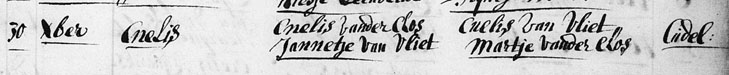 30 Xber Cnelis Cnelis vander Clos Cnelis van Vliet Cadel:
Jannetje van Vliet Martje vander Clos